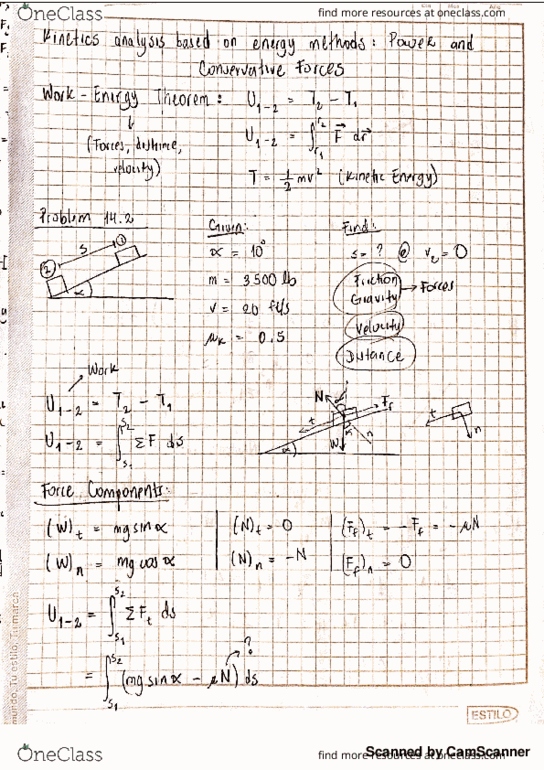 OneClass
find more resources at oneclass.com
Kinetics analysis based on energy methods: Power and
Conservative Forces
Work - Energy Theorem: U₁₋₂ = T₂ - T₁
(Forces, distance,
velocity)
U₁₋₂ = ∫_{r₁}^{r₂} F⃗ dr⃗
T = 1/2 mv² (Kinetic Energy)
Problem 14.2
Given:
α = 10°
m = 3500 lb
v = 20 ft/s
μₖ = 0.5
Find:
s = ? @ v₂ = 0
Friction
Gravity → Forces
Velocity
Distance
s
①
②
α
Work
U₁₋₂ = T₂ - T₁
U₁₋₂ = ∫_{s₁}^{s₂} ΣF ds
N
F_f
t
W
n
α
t
n
Force Components:
(W)_t = mg sin α
(W)_n = mg cos α
(N)_t = 0
(N)_n = -N
(F_f)_t = -F_f = -μN
(F_f)_n = 0
U₁₋₂ = ∫_{s₁}^{s₂} ΣF_t ds
= ∫_{s₁}^{s₂} (mg sin α - μN) ds
?
ESTILO
OneClass
find more resources at oneclass.com
Scanned by CamScanner